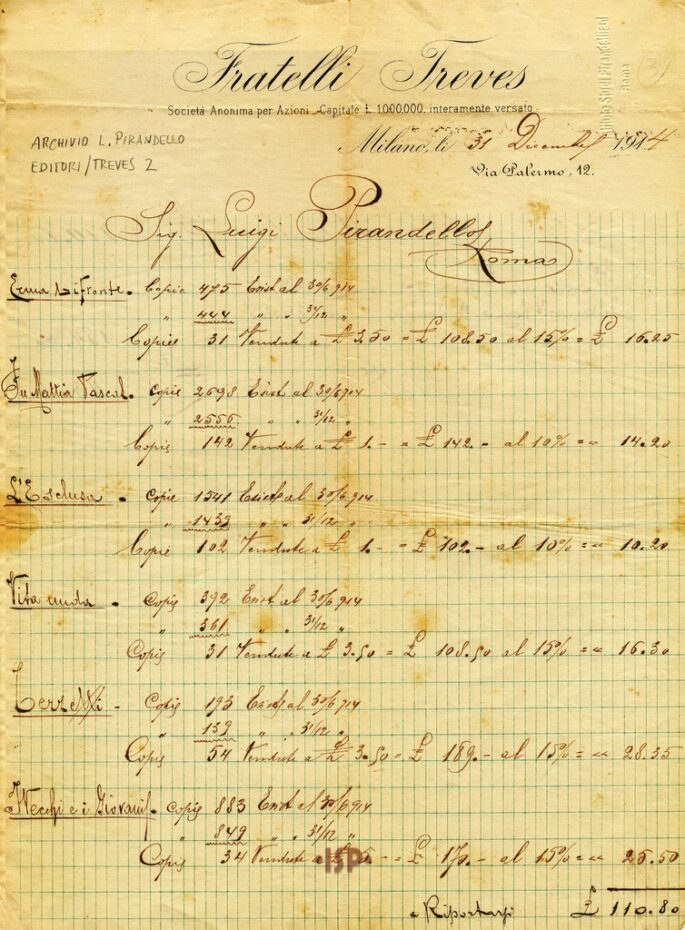 Fratelli Treves
Società Anonima per Azioni - Capitale L. 1.000.000, interamente versato
ARCHIVIO L. PIRANDELLO
EDITORI / TREVES 2
Milano, li 31 Dicembre 1914
Via Palermo, 12.
Sig. Luigi Pirandello
Roma
Erma Bifronte - Copie 475 Esist al 30/6 914
" 444 " " 31/12 "
Copie 31 Vendute a £ 3.50 = £ 108.50 al 15% = £ 16.25
Fu Mattia Pascal. Copie 2698 Esist al 30/6 914
" 2556 " " 31/12 "
Copie 142 Vendute a £ 1.- = £ 142.- al 10% = " 14.20
L'Esclusa - Copie 1541 Esist al 30/6 914
" 1439 " " 31/12 "
Copie 102 Vendute a £ 1.- = £ 102.- al 10% = " 10.20
Vita nuda - Copie 392 Esist al 30/6 914
" 361 " " 31/12 "
Copie 31 Vendute a £ 3.50 = £ 108.50 al 15% = " 16.30
Terzetti - Copie 193 Esist al 30/6 914
" 139 " " 31/12 "
Copie 54 Vendute a £ 3.50 = £ 189.- al 15% = " 28.35
I Vecchi e i Giovani - Copie 883 Esist al 30/6 914
" 849 " " 31/12 "
Copie 34 Vendute a £ 5.- = £ 170.- al 15% = " 25.50
ISP
a Riportarsi £ 110.80